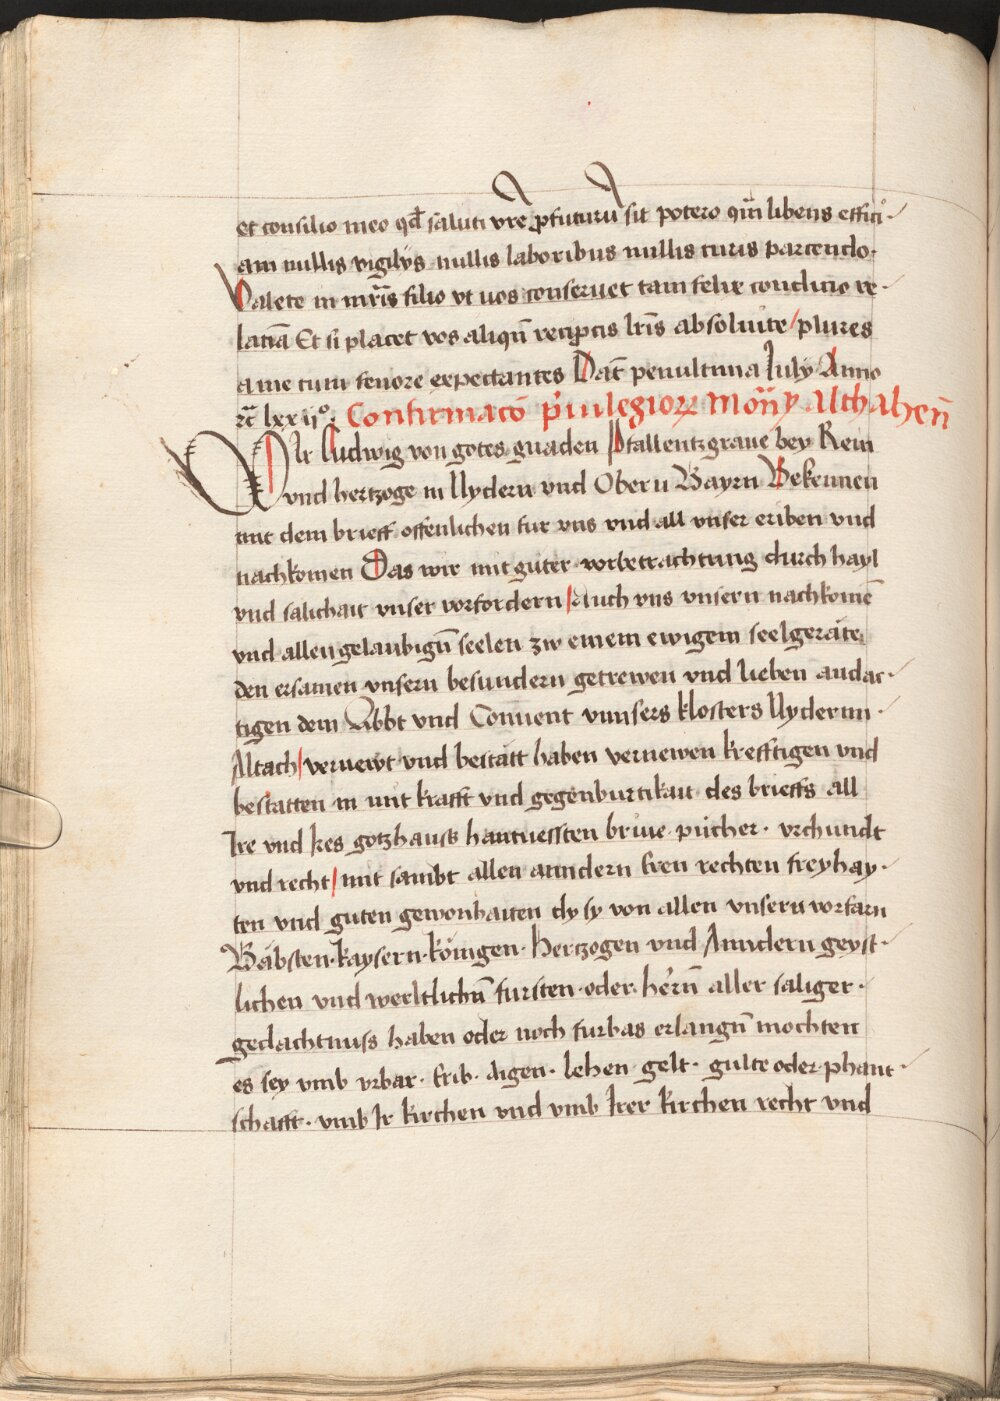 et consilio meo qđ saluti vr̄e ꝓfuturū sit potero qm̄ libetis effici-
am nullis vigilijs nullis laboribus nullis curis parcendo.
Valete in mr̄is filio vt uos conseruet tam felix condicio re-
latiā Et si placet vos aliqn̄ receptis lr̄is absoluite / plures
a me cum fenore expectantes Dat̄ penultima July Anno
rc̄ lxxijº. Confirmacō p̄uilegiorꝝ mon̄y Althahen̄
Wir Ludwig von gotes gnaden Pfallentzgraue bey Rein
vnd hertzoge in Nydern vnd Obern Bayrn Bekennen
mit dem brieff offenlichen fur vns vnd all vnser eriben vnd
nachkomen Das wir mit guter vorbetrachtung durch hayl
vnd salichait vnser vorfordern / Auch vns vnsern nachkomē
vnd allen gelaubign̄ seelen zw einem ewigem seelgeräte
den ersamen vnsern besundern getrewen vnd lieben andac-
tigen dem Abbt vnd Conuent vnnsers klosters Nydernn
Altach / vernewt vnd bestätt haben vernewen krefftigen vnd
bestatten in mit krafft vnd gegenburtikait des brieffs all
Ire vnd Ires gotzhauss hantuessten briue. pücher. vrchundt
vnd recht / mit sambt allen anndern Iren rechten freyhay-
ten vnd guten gewonhaiten dy sy von allen vnsern vorfarn
Bäbsten. kaysern. königen. Hertzogen vnd Anndern geyst-
lichen vnd werltlichn̄ fursten. oder. hern̄ aller saliger.
gedachtnuss haben oder noch furbas erlangn̄ mochten
es sey vmb vrbar. Erib. aigen. lehen gelt. gulte oder phant-
schafft. vmb Ir kirchen vnd vmb Irer kirchen recht vnd